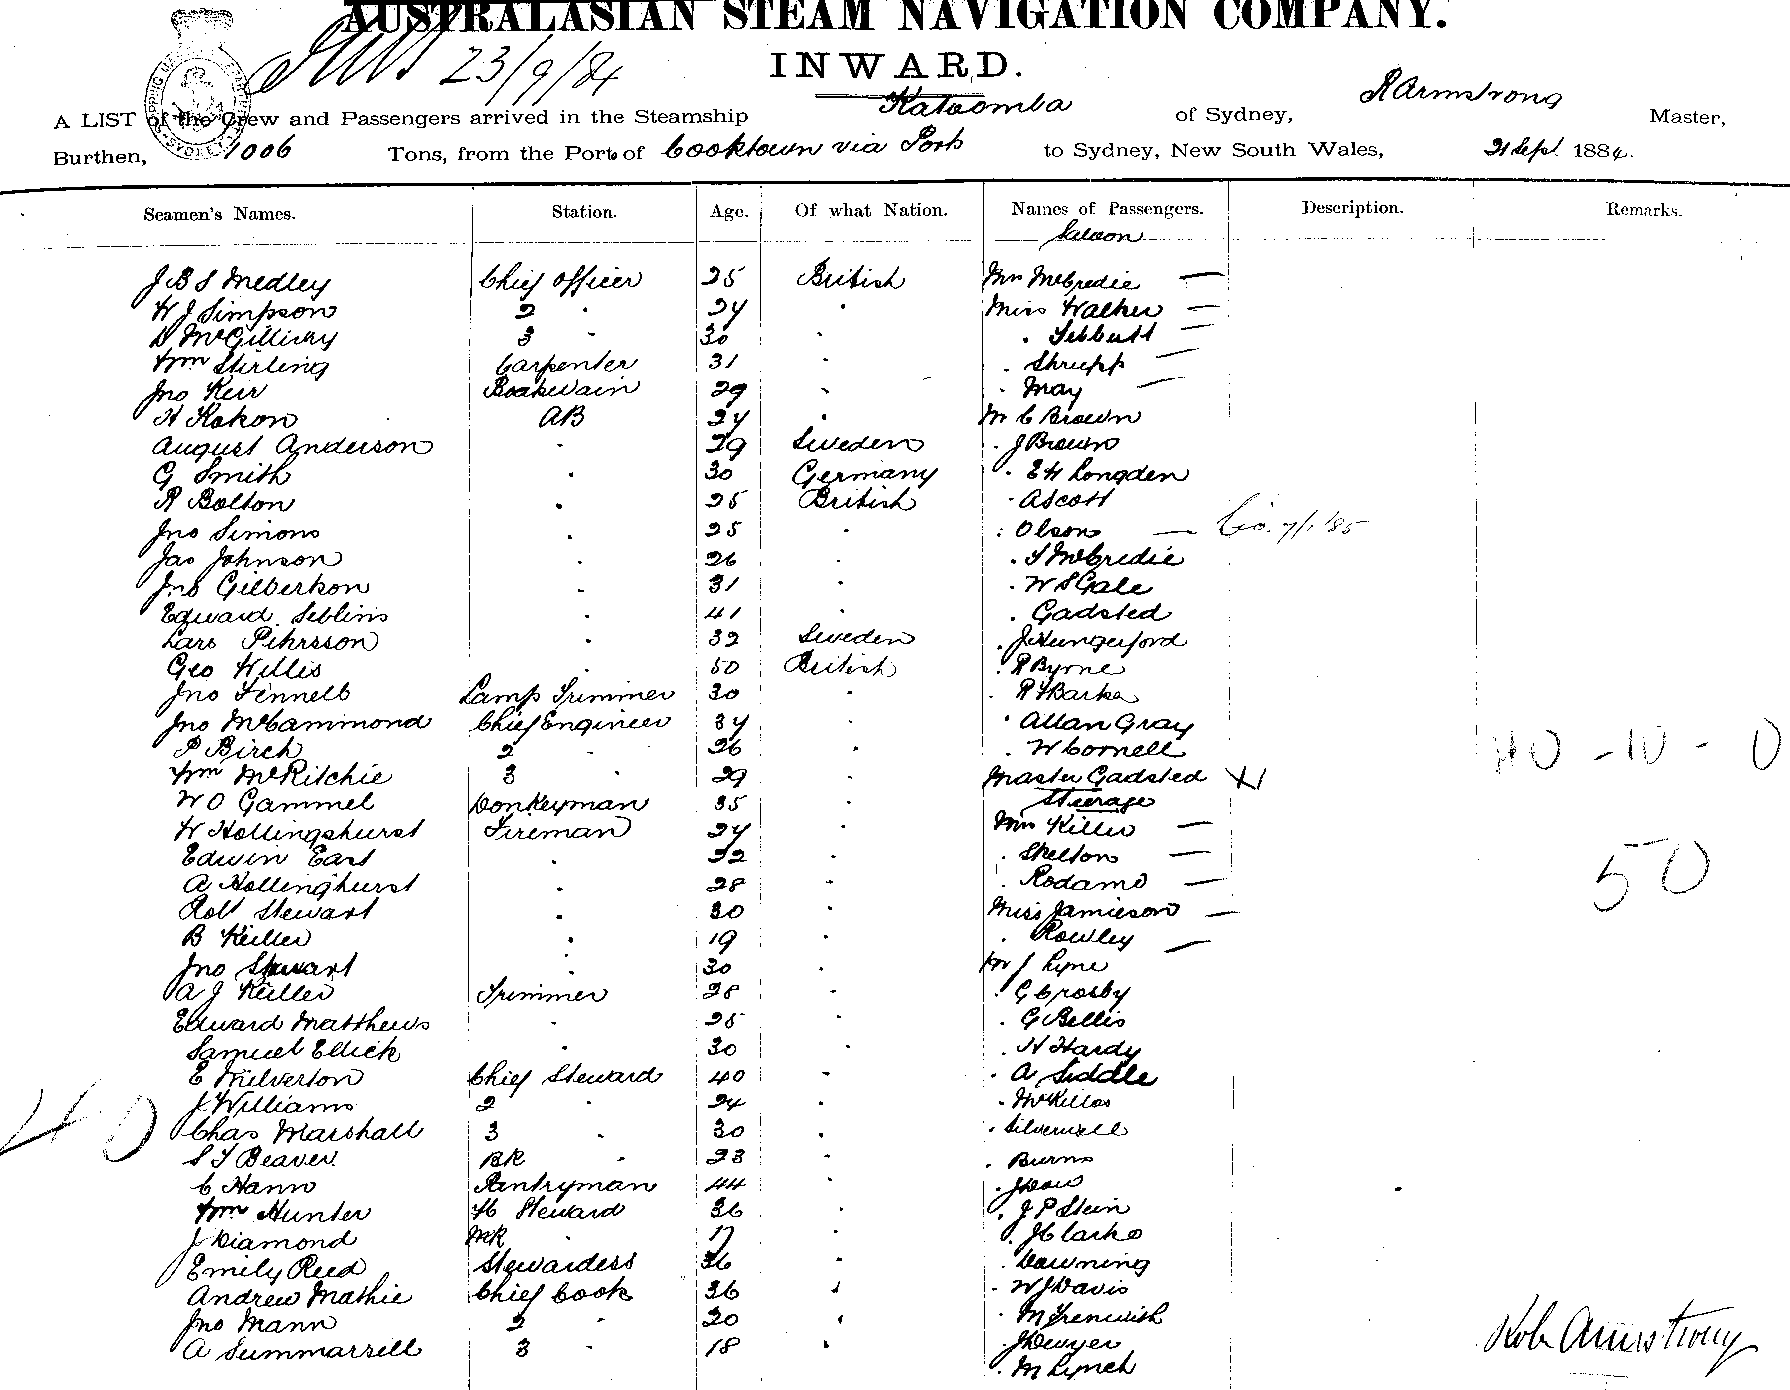 AUSTRALASIAN STEAM NAVIGATION COMPANY.
23/9/84
INWARD.
A LIST of the Crew and Passengers arrived in the Steamship Katoomba of Sydney, R Armstrong Master,
Burthen, 1006 Tons, from the Port of Cooktown via Ports to Sydney, New South Wales, 21 Sept. 1884.
Seamen's Names. Station. Age. Of what Nation. Names of Passengers. Description. Remarks.
Saloon
J B S Medley Chief Officer 25 British Mrs McCredie —
W J Simpson 2 " 24 " Miss Walker —
D McGillivray 3 " 30 " " Tebbutt —
Wm Stirling Carpenter 31 " " Shrupp —
Jno Keir Boatswain 29 " " May —
H Kokon AB 24 " Mr C Brown
August Anderson " 29 Sweden " J Brown
G Smith " 30 Germany " E H Longden
R Bolton " 25 British " A Scott
Jno Simons " 25 " " Olson — Co. 7/1/85
Jas Johnson " 26 " " T McCredie
Jno Gilbertson " 31 " " W S Gale
Edward Seblins " 41 " " Gadsted
Lars Pihrsson " 32 Sweden " J Hungerford
Geo Willis " 50 British " R Byrne
Jno Fennell Lamp Trimmer 30 " " R H Barker
Jno McCammond Chief Engineer 34 " " Allan Gray
P Birch 2 " 26 " " W Cornell
Wm McRitchie 3 " 29 " Master Gadsted X 1
40 - 10 - 0
W O Gammel Donkeyman 35 " Steerage
W Hollingshurst Fireman 24 " Mrs Killer —
Edwin East " 32 " " Skelton —
A Hollinghurst " 28 " " Rodamo —
50
Robt Stewart " 30 " Miss Jamieson —
B Keiller " 19 " " Rowley —
Jno Stewart " 30 " Mr J Lyne
A J Keiller Trimmer 28 " " G Crosby
Edward Matthews " 25 " " G Bellis
Samuel Ellick " 30 " " H Hardy
E Milverton Chief Steward 40 " " A Siddle
J Williams 2 " 24 " " McKillop
40
Chas Marshall 3 " 30 " " Silverwell
S T Beaver BR " 23 " " Burns
C Hann Pantryman 44 " " J Dow
Wm Hunter FC Steward 36 " " J P Stein
J Diamond MR " 17 " " J Clarke
Emily Reed Stewardess 36 " " Downing
Andrew Mathie Chief Cook 36 " " W J Davis
Jno Mann 2 " 20 " " M Trenwith
A Summarsell 3 " 18 " " J Dwyer
" M Lynch
Rob Armstrong